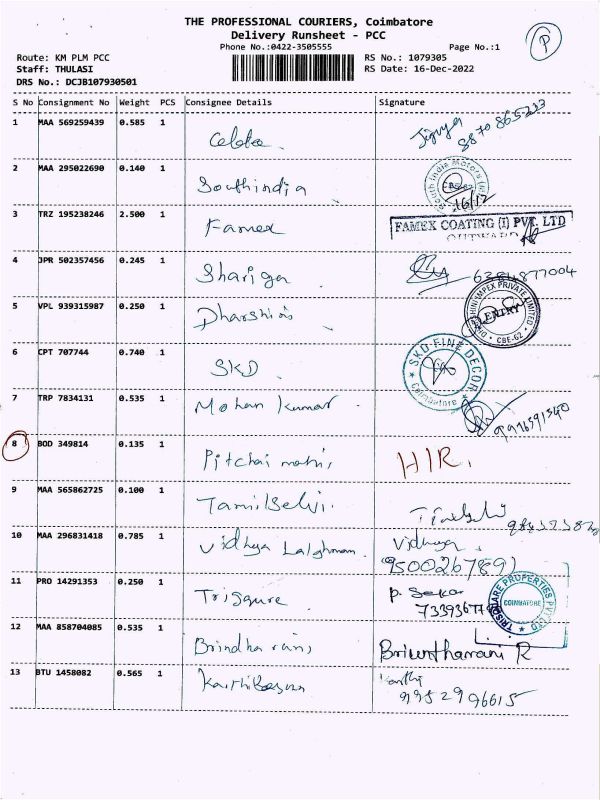 THE PROFESSIONAL COURIERS, Coimbatore
Delivery Runsheet - PCC
Phone No.:0422-3505555
Page No.:1
P
Route: KM PLM PCC
RS No.: 1079305
Staff: THULASI
RS Date: 16-Dec-2022
DRS No.: DCJB107930501
S No Consignment No Weight PCS Consignee Details Signature
1 MAA 569259439 0.585 1
8870865223
2 MAA 295022690 0.140 1 Southindia
16/12
3 TRZ 195238246 2.500 1 Famex
FAMEX COATING (I) PVT. LTD
OUTWARD
4 JPR 502357456 0.245 1 Shariga
5 VPL 939315987 0.250 1
ENTRY
CBE-62
6 CPT 707744 0.740 1 SKD
SKD FINE DECOR
Coimbatore
7 TRP 7834131 0.535 1 Mohan Kumar
8 BOD 349814 0.135 1 HIR.
9 MAA 565862725 0.100 1 Tamilselvi.
10 MAA 296831418 0.785 1 Vidhya Vidhya
9500267891
11 PRO 14291353 0.250 1 Trisqure P. Sekar
TRISQUARE PROPERTIES PVT LTD
COIMBATORE
12 MAA 858704085 0.535 1 Brindha rani
13 BTU 1458082 0.565 1
9952996615